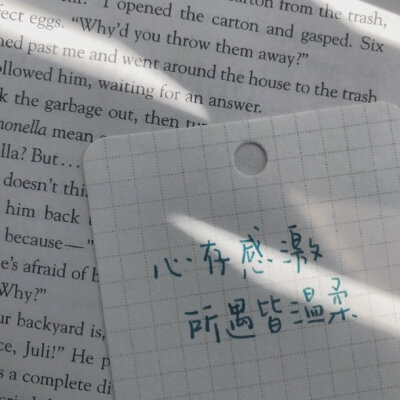 carton from the trash,
I opened the carton and gasped. Six
fect eggs. “Why’d you throw them away?”
ned past me and went around the house to the trash
ollowed him, waiting for an answer.
k the garbage out, then
monella mean
lla? But . . .
doesn’t
him back
because—”
e’s afraid of
Why?”
ur backyard is,
ce, Juli!” He
s a complete
心存感激
所遇皆温柔